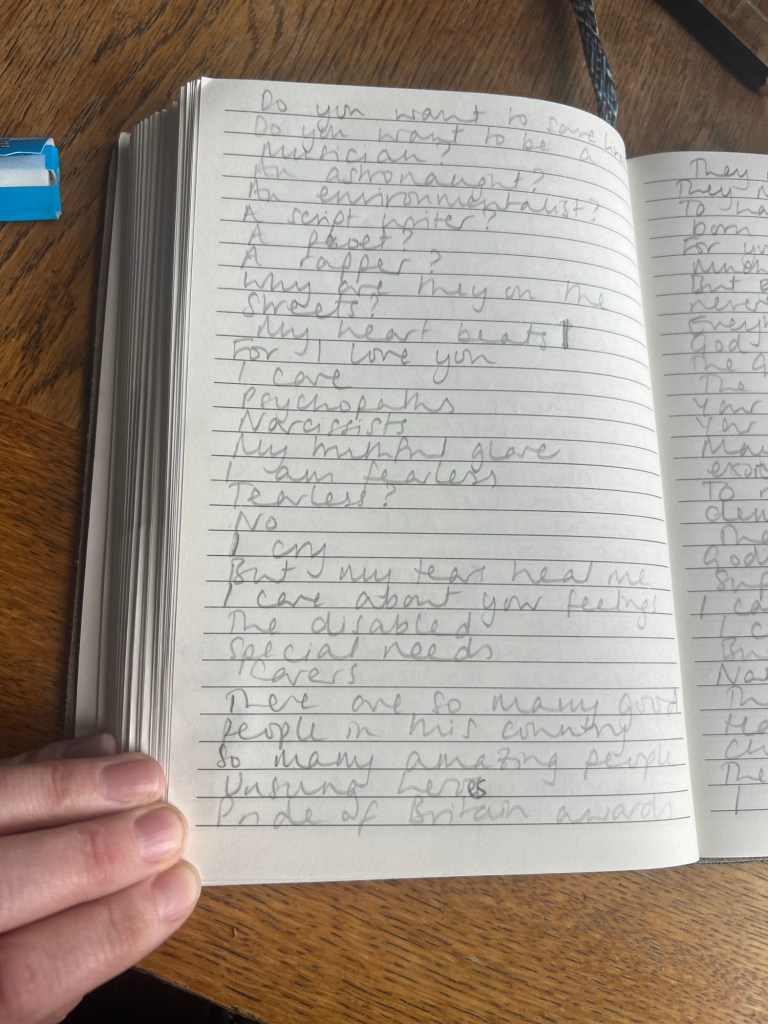 Do you want to save
Do you want to be a
musician?
An astronaught?
An environmentalist?
A script writer?
A poet?
A rapper?
Why are they on the
streets?
My heart beats
For I love you
I care
Psychopaths
Narcissists
My truthful glare
I am fearless
Tearless?
No
I cry
But my tears heal me
I care about your feelings
The disabled
Special needs
Carers
There are so many good
people in this country
So many amazing people
Unsung heroes
Pride of Britain awards
They
They
To ha
born
For yo
much
But
never
Every
God
The g
The
Your
Your
Man
exor
To
den
The
God
Suf
I ca
I c
Bu
Na
Th
Ha
Ch
The
I